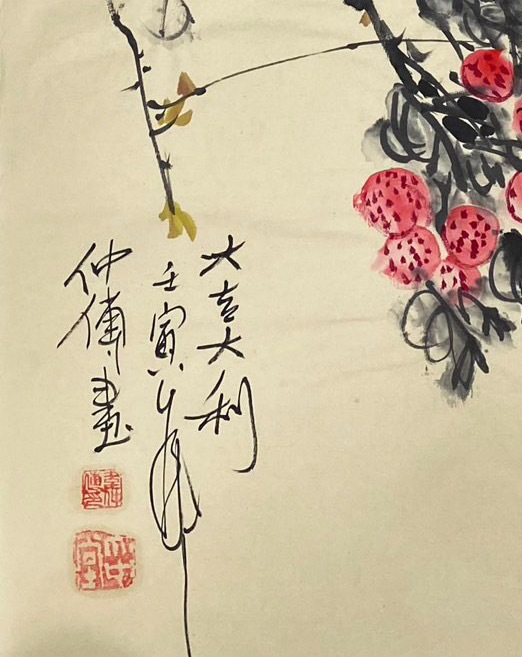 大吉大利
壬寅年
仲傅畫